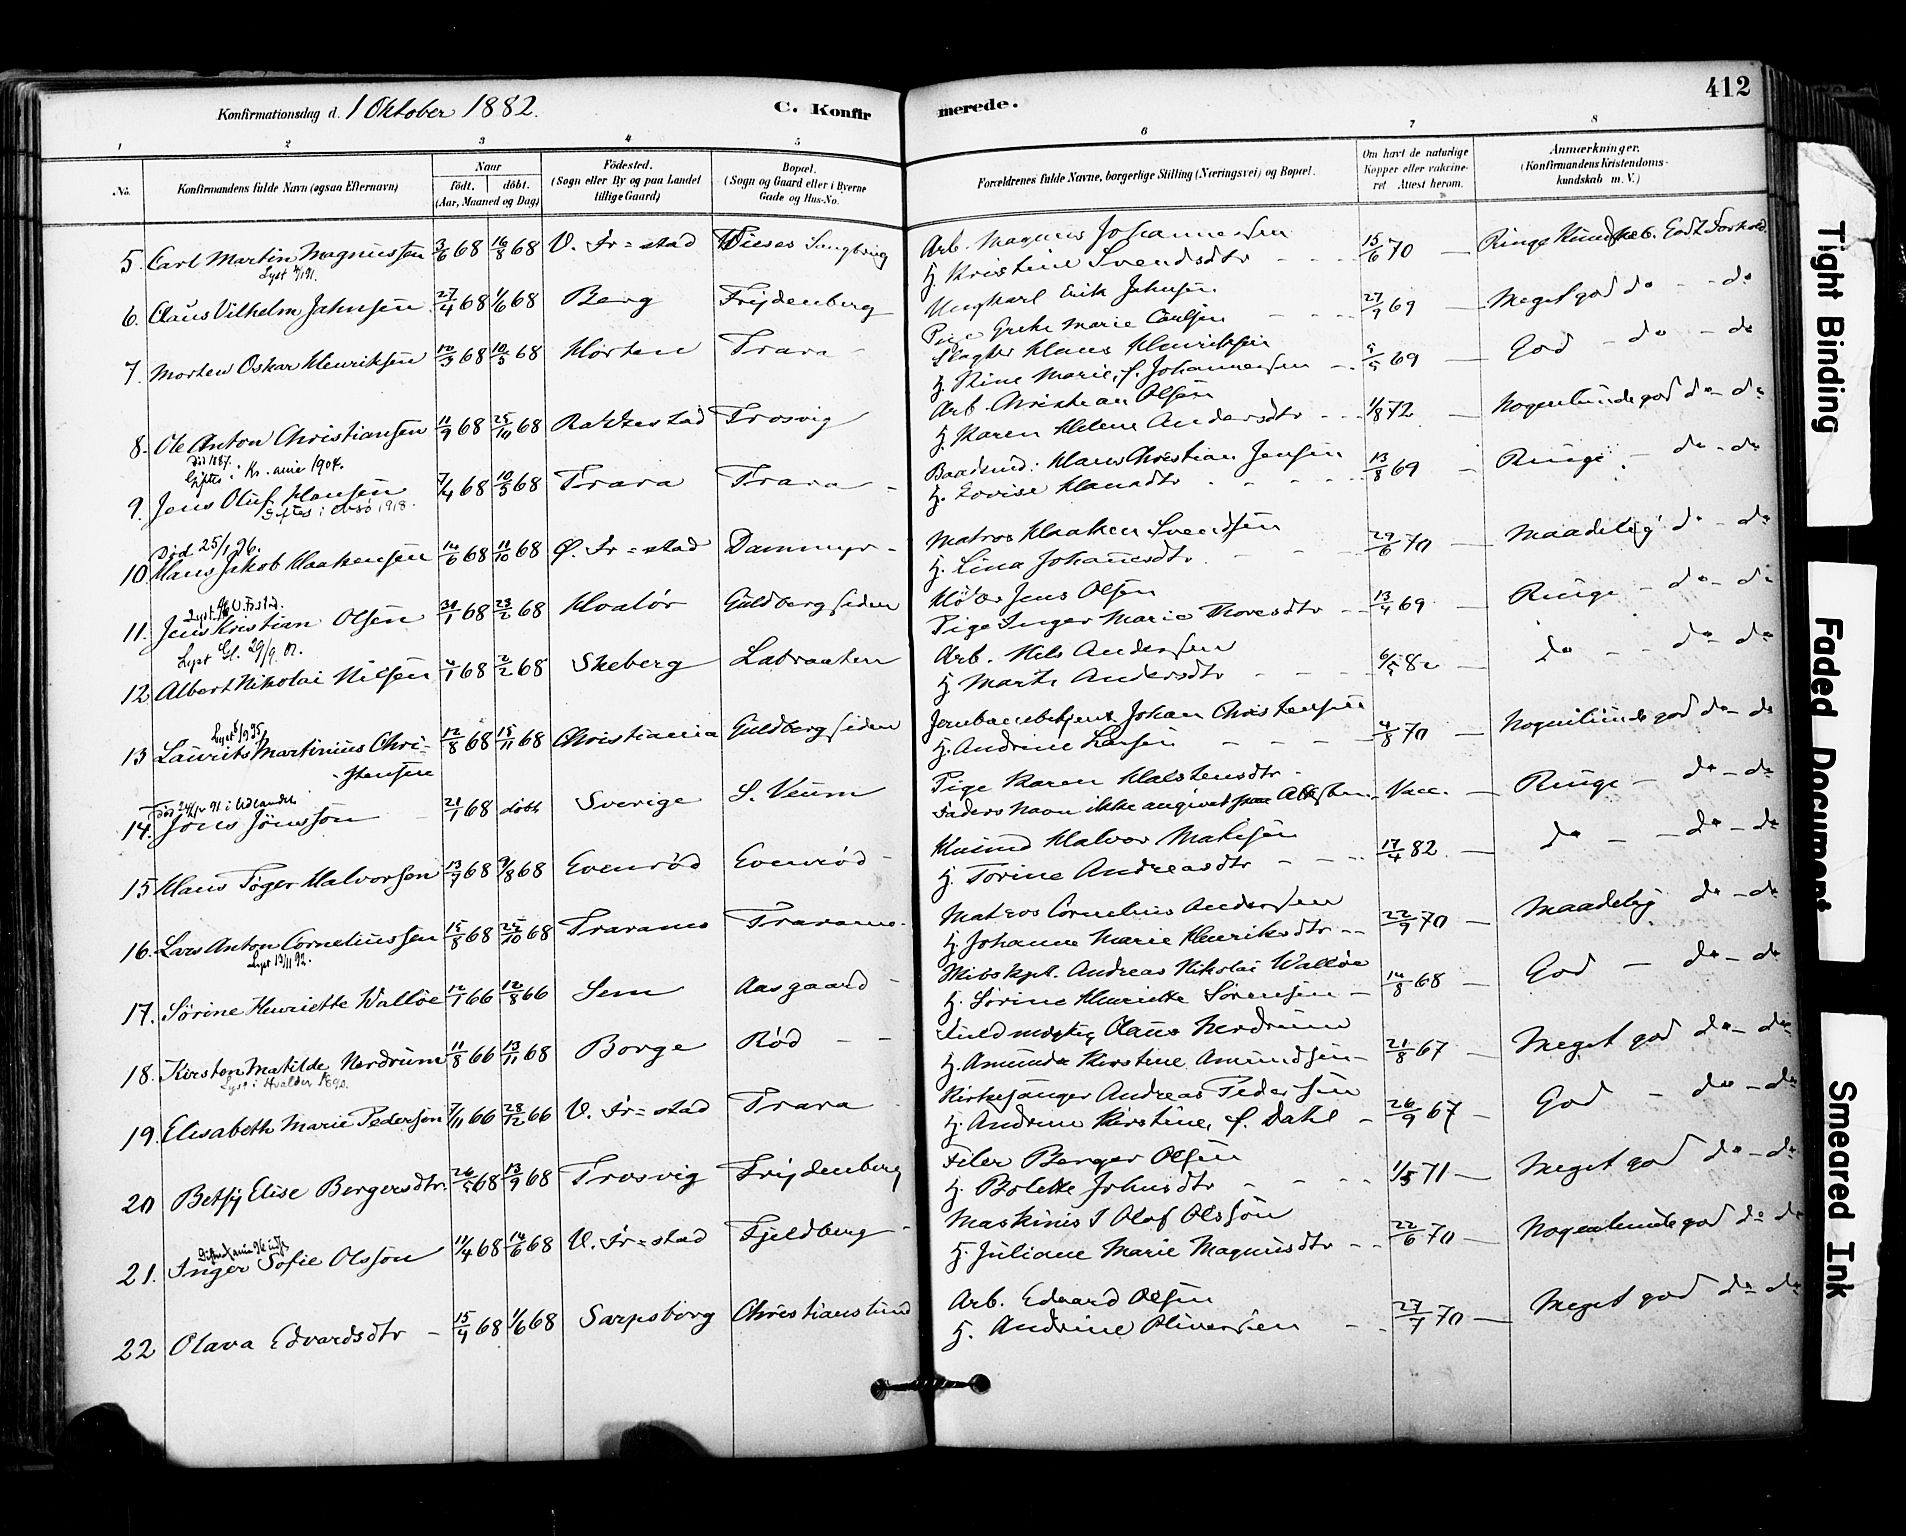 412
Konfirmationsdag d. 1 Oktober 1882.
C. Konfirmerede.
1 2 3 4 5 6 7 8
No.
Konfirmandens fulde Navn (ogsaa Efternavn)
Naar
født. døbt.
(Aar, Maaned og Dag)
Fødested.
(Sogn eller By og paa Landet
tillige Gaard)
Bopæl.
(Sogn og Gaard eller i Byerne
Gade og Hus-No.
Forældrenes fulde Navne, borgerlige Stilling (Næringsvei) og Bopæl.
Om havt de naturlige
Kopper eller vakcine-
ret Attest herom.
Anmærkninger.
(Konfirmandens Kristendoms-
kundskab m. V.)
5. Carl Martin Magnussen 3/6 68 16/8 68 V. Fr=stad Arb. Magnus Johannesen 15/6 70 — Ringe Kundskab. Godt Forhold.
Lyst H. Kristine Svendsdtr
6. Claus Vilhelm Jahnsen 27/4 68 1/6 68 Berg Frydenberg Ungkarl Erik Jahnsen 27/9 69 — Meget god do - do
Pige Grete Marie Carlsen
7. Morten Oskar Henriksen 10/3 68 10/5 68 Horten Trara Slagter Klaus Henriksen 9/5 69 — God - do - do
H. Stine Marie, f. Johannesen
8. Ole Anton Christiansen 11/9 68 25/10 68 Rakkestad Trosvig Arb. Christian Olsen 1/8 72 Nogenlunde god do - do
Død 1887. H. Karen Helene Andersdtr
Giftes i Kr. ania 1904.
9. Jens Oluf Hansen 7/4 68 10/5 68 Trara Trara Baadsmd: Hans Christian Jensen 13/8 69 - Ringe - do - do
Giftes i 1918. H. Lovise Hansdtr
Død 25/1 96.
10 Hans Jakob Haakensen 14/6 68 11/10 68 Ø. Fr=stad Dammyr - Matros Haaken Svendsen 29/6 70 — Maadelig do - do
H. Lina Johannesdtr
11. Jens Kristian Olsen 31/1 68 23/2 68 Hvaler Guldbergsiden Jens Olsen 13/4 69 - Ringe - do - do
Pige Inger Marie Thoresdtr
Lyst Gl. 29/9. 01.
12 Albert Nikolai Nilsen 4/1 68 2/2 68 Skeberg Labraaten Arb. Nils Andersen 6/5 82 — do - do - do
H. Marte Andersdtr
13 Laurits Martinius Chri- 12/8 68 15/11 68 Christiania Guldbergsiden Jernbanebetjent Johan Christensen 4/8 70 — Nogenlunde god do - do
stensen H. Andrine Larsen
14. Jøns Jønsson 21/1 68 døbt Sverige S. Veum Pige Karen Halstensdtr - Vacc. - Ringe - do - do
Faders Navn ikke angivet paa Attesten
15 Hans Tøger Halvorsen 13/7 68 9/8 68 Evenrød Evenrød - Husmd Halvor Matisen 17/4 82. — do - do - do
H. Torine Andreasdtr
16. Lars Anton Corneliussen 15/8 68 25/10 68 Trarans Trarans - Matros Cornelius Andersen 22/9 70 — Maadelig do - do
Lyst 13/11 92. H. Johanne Marie Henriksdtr
17. Sørine Henriette Walløe 12/1 66 12/8 66 Sem Aasgaard - Skibskpt. Andreas Nikolai Walløe 14/8 68 - God - do - do
H. Sørine Henriette Sørensen
18. Kirsten Matilde Nerdrum 11/8 66 13/11 68 Borge Rød - - Fuldmægtig Claus Nerdrum 21/8 67 - Meget god do - do
Lyst i Hvaler 1890. H. Amunda Kirstine Amundsen
19. Elisabeth Marie Pedersen 7/11 66 28/12 66 V. Fr=stad Trara Kirkesanger Andreas Pedersen 26/9 67 - God - do - do
H. Andrine Kirstine, f. Dahl
20 Betsy Elise Bergersdtr. 26/5 68 13/9 68 Trosvig Frydenberg Filer Berger Olsen 1/5 71 — Meget god do - do
H. Bolette Johnsdtr
21. Inger Sofie Olsson 11/4 68 14/6 68 V. Fr=stad Fjeldberg - Maskinist Olof Olsson 22/6 70 — Nogenlunde god do do
H. Juliane Marie Magnusdtr
22 Olava Edvardsdtr - 15/4 68 1/6 68 Sarpsborg Christianslund Arb. Edvard Olsen 27/7 70 — Meget god do do
H. Andrine Oliversen
Tight Binding
Faded Document
Smeared Ink